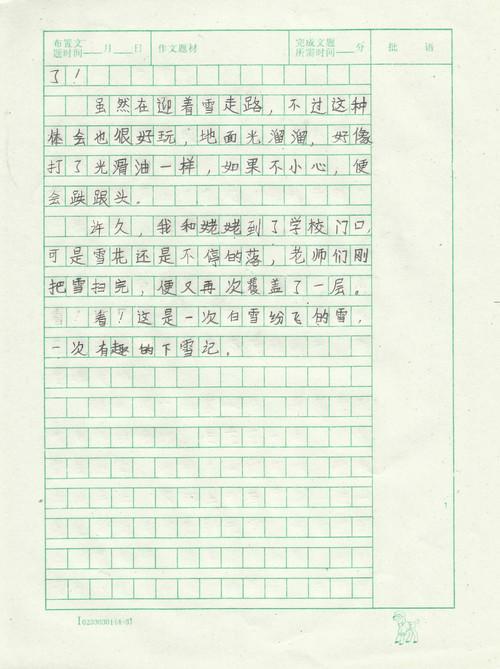 布置文
题时间___月___日
作文题材
完成文题
所需时间___分
批 语
了!
虽然在迎着雪走路,不过这种
体会也很好玩,地面光溜溜,好像
打了光滑油一样,如果不小心,便
会跌跟头。
许久,我和姥姥到了学校门口,
可是雪花还是不停的落,老师们刚
把雪扫完,便又再次覆盖了一层。
看!这是一次白雪纷飞的雪,
一次有趣的下雪记。